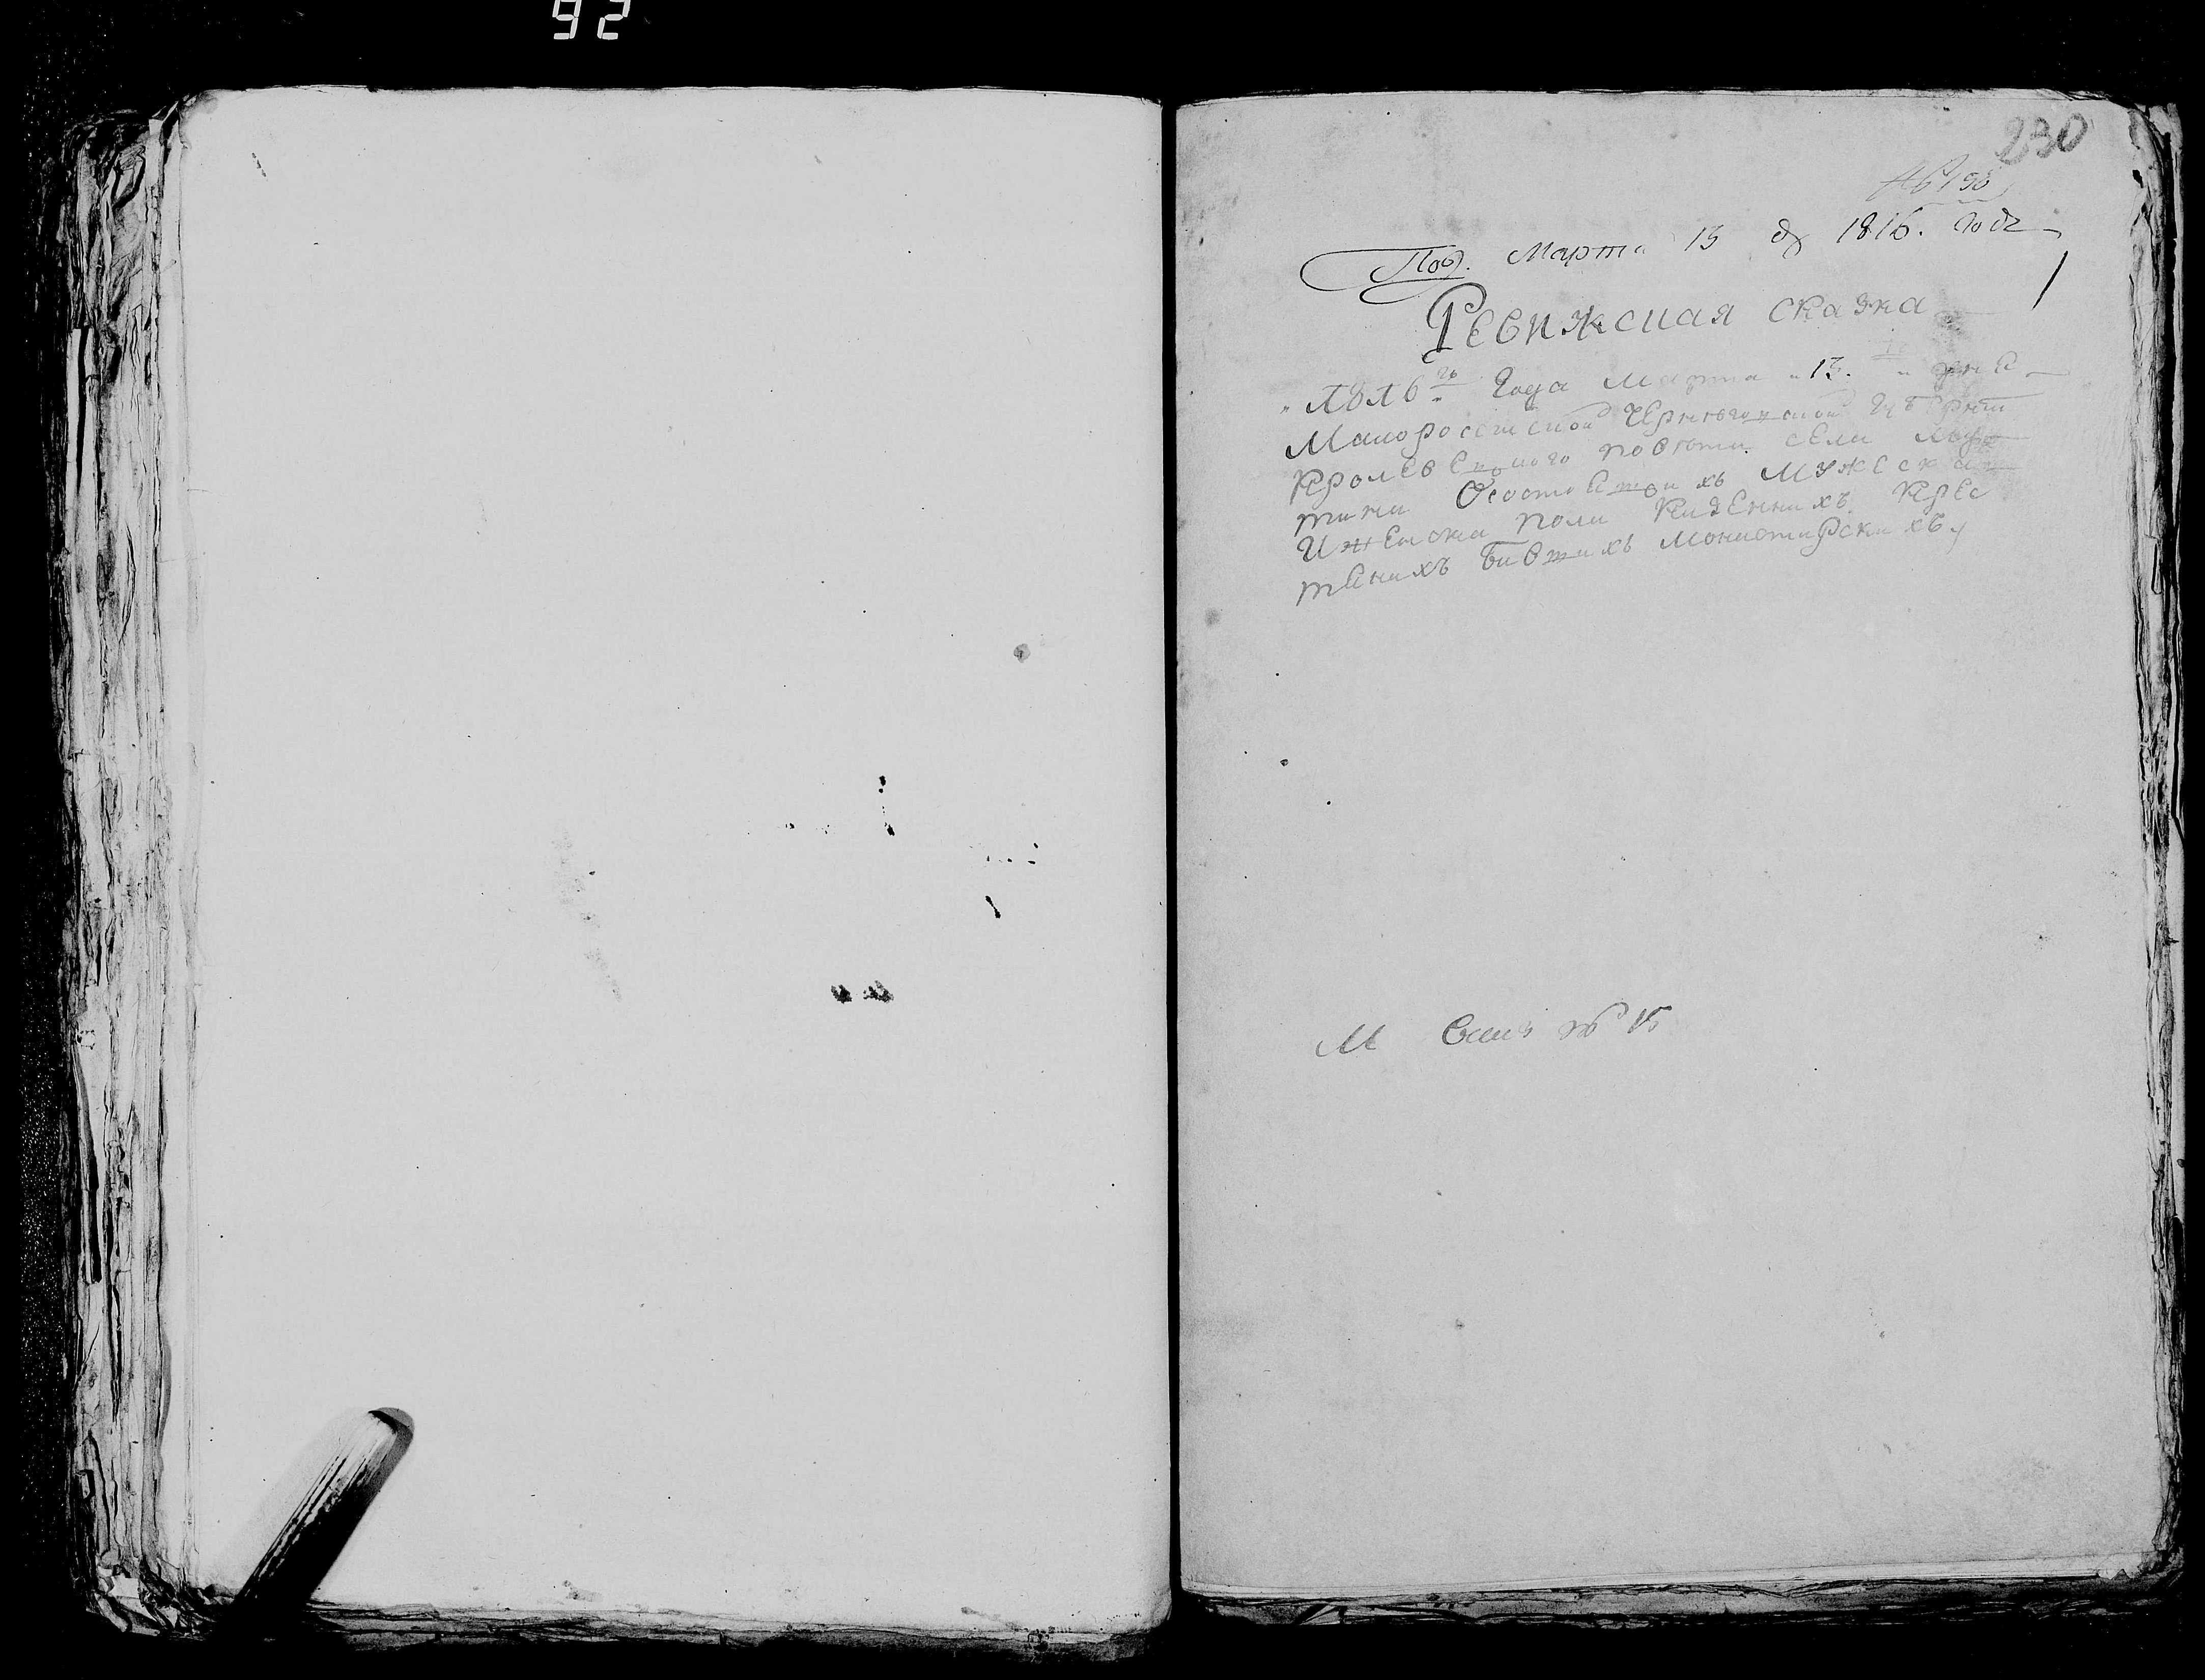 92
230
№ 198
Под. Марта 13 д 1816. года
1
Ревижская сказка
1816го Года Марта 13. дня
Малоросейской Черниговской Губернии
Кролевецкого повюта села
тина Осостоящихъ Мужеска
Иженска пола Казеннихъ Крес
тянихъ бившихъ монастирскихъ
М №15